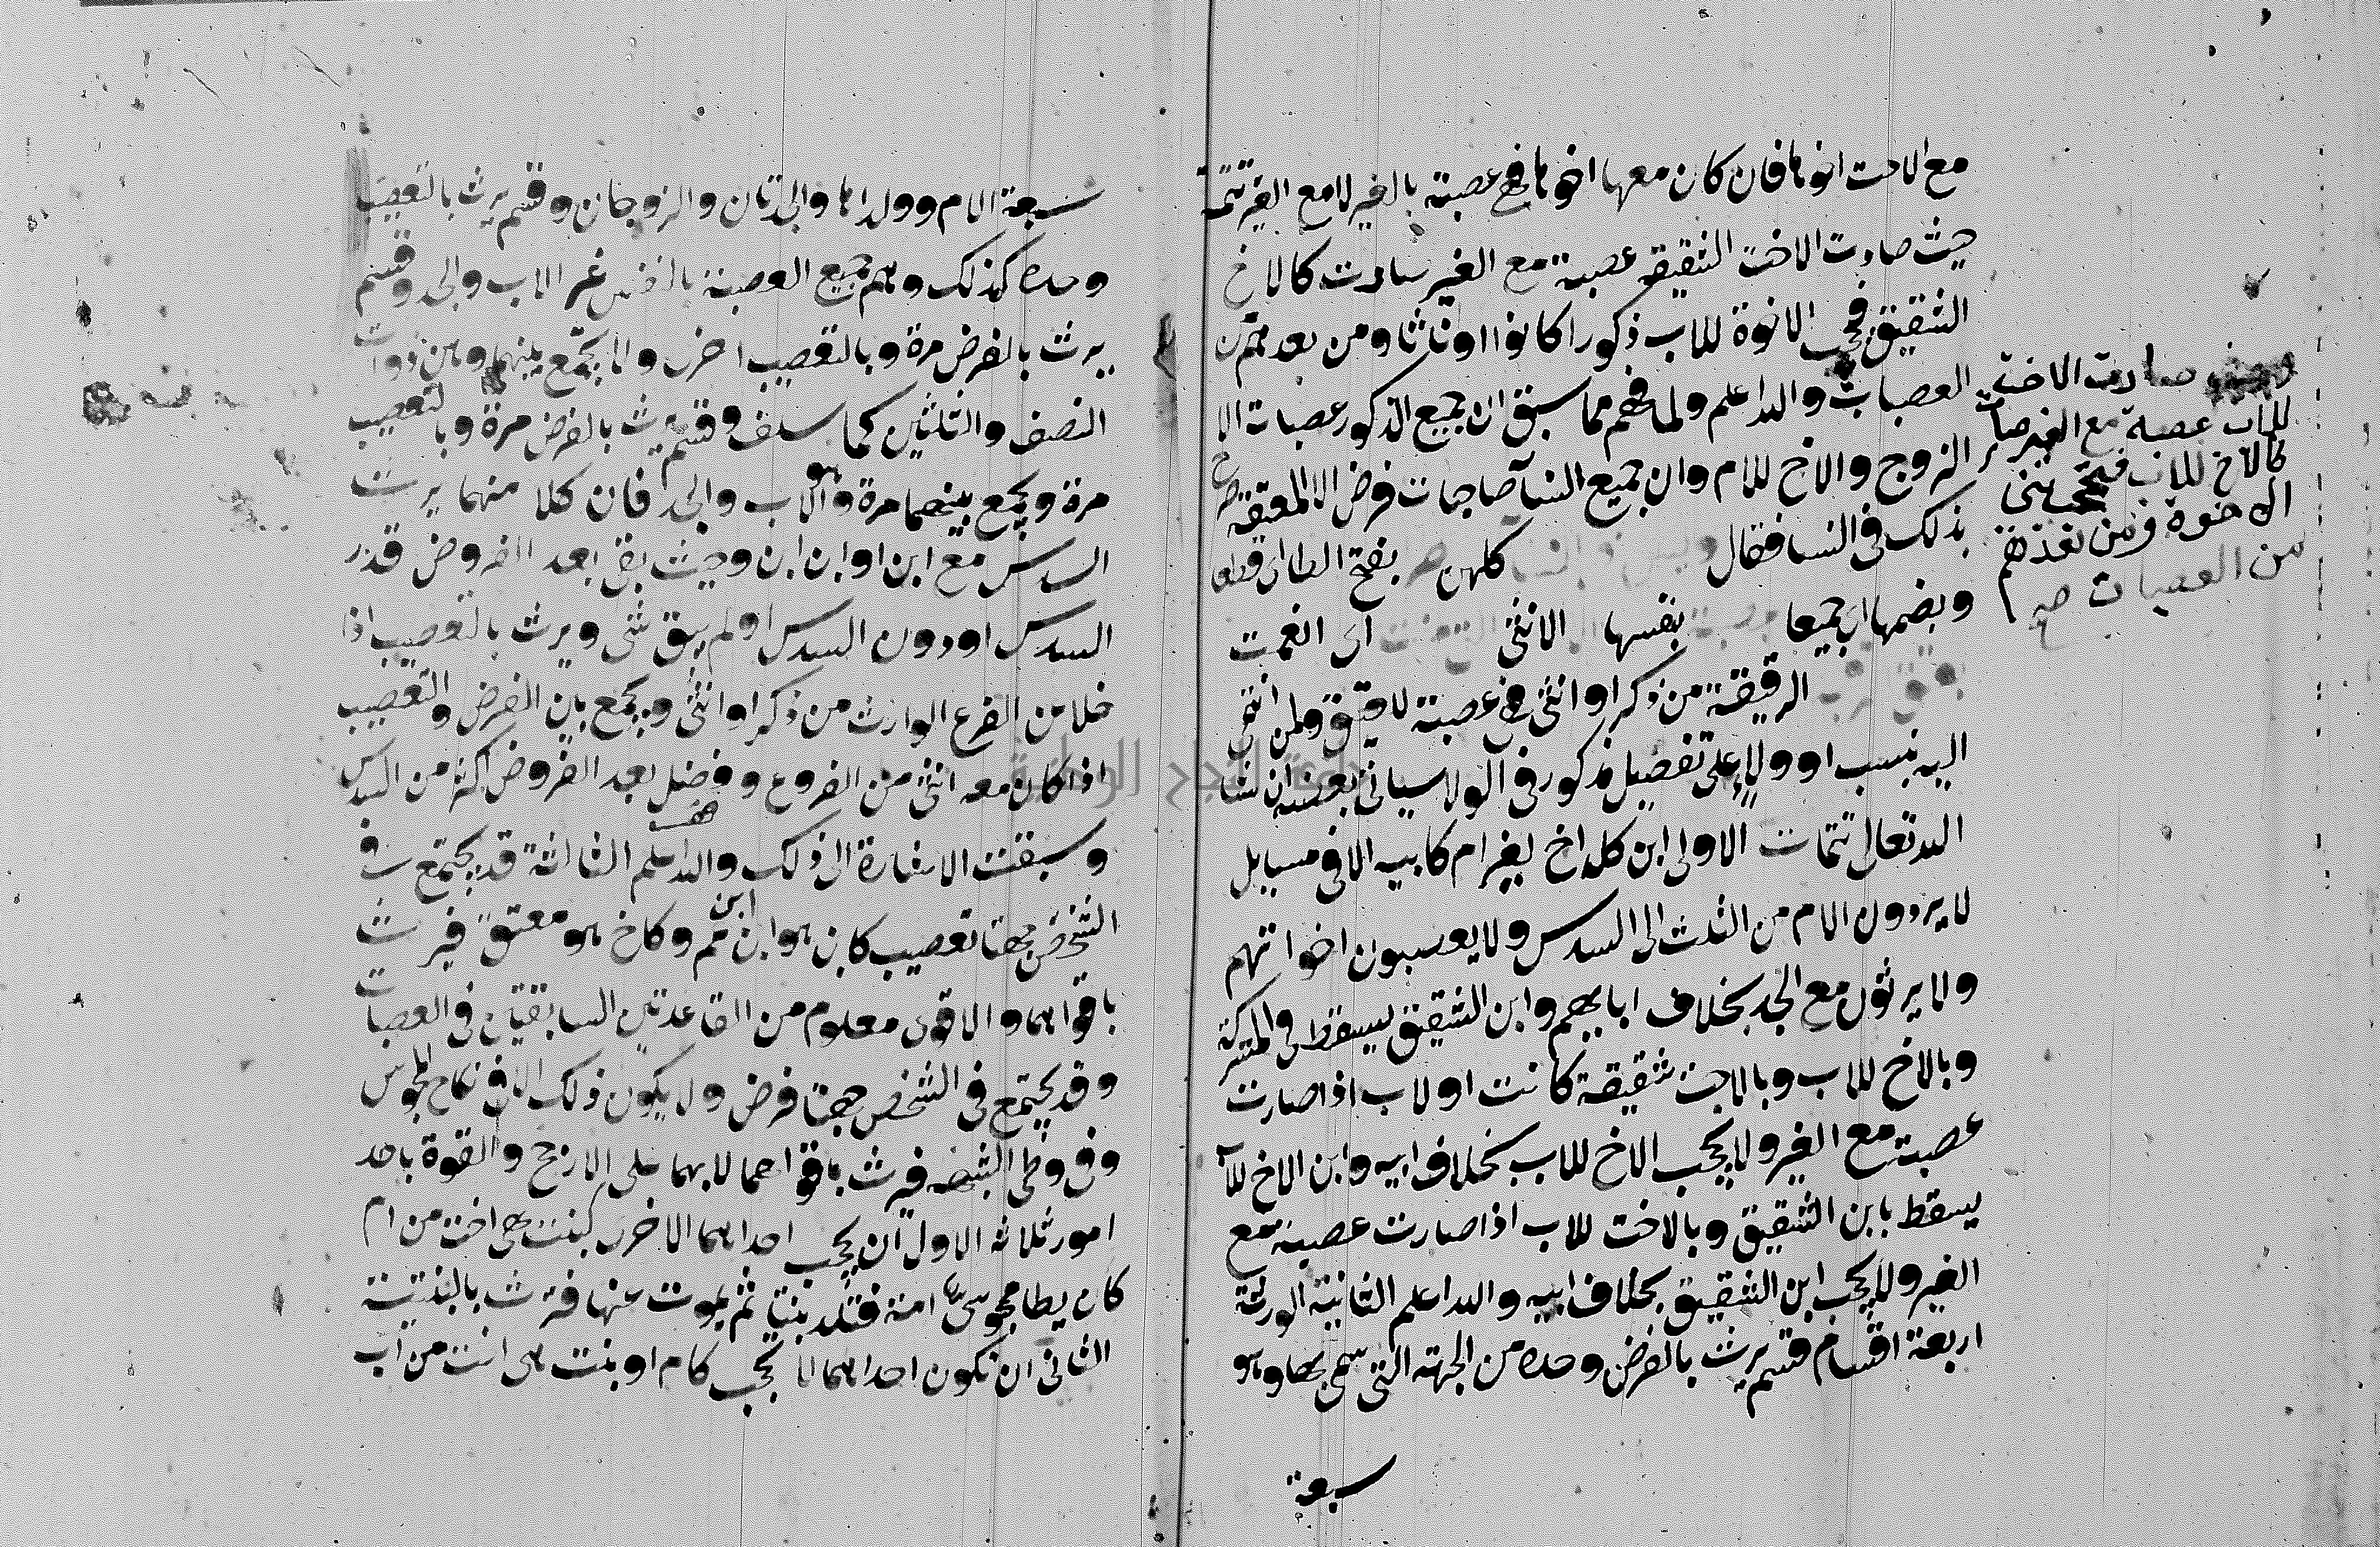 مع الاخت اخوها فان كان معها اخوها فهي عصبة بالغير لا مع الغير تتمة
حيث صارت الاخت الشقيقة عصبة مع الغير سارت كالاخ
الشقيق فتحجب الاخوة للاب ذكورا كانوا او اناثا ومن بعدهم من
العصبات والله اعلم ولما فهم مما سبق ان جميع الذكور عصبات الا
الزوج والاخ للام وان جميع النسآ صاحبات فرض الا المعتقة صرح
بذلك في النسا فقال وليس في النسا كلهن بفتح الطا اي قطعا
وبضمها اي جميعا بنفسها الانثى التي منت اي انعمت
بعتق الرقبة الرقيقة من ذكر او انثى فهي عصبة للعتيق ولمن انتمى
اليه بنسب او ولاء على تفصيل مذكور في الولا سياتي بعضه ان شا
الله تعالى تتمات الاولى ابن كل اخ لغير ام كابيه الا في مسايل
لا يردون الام من الثلث الى السدس ولا يعصبون اخواتهم
ولا يرثون مع الجد بخلاف ابايهم وابن الشقيق يسقط في المشركة
وبالاخ للاب وبالاخت شقيقة كانت او لاب اذا صارت
عصبة مع الغير ولا يحجب الاخ للاب بخلاف ابيه وابن الاخ للاب
يسقط بابن الشقيق وبالاخت للاب اذا صارت عصبة مع
الغير ولا يحجب ابن الشقيق بخلاف ابيه والله اعلم الثانية الورثة
اربعة اقسام قسم يرث بالفرض وحده من الجهة التي سمي بها وهو
سبعة
وحيث صارت الاخت
للاب عصبة مع الغير صارت
كالاخ للاب فتحجب بني
الاخوة ومن بعدهم
من العصبات صح
سبعة الام وولداها والجدتان والزوجان وقسم يرث بالتعصيب
وحده كذلك وهم جميع العصبة بالنفس غير الاب والجد وقسم
يرث بالفرض مرة وبالتعصيب اخرى ولا يجمع بينهما وهن ذوات
النصف والثلثين كما سلف وقسم يرث بالفرض مرة وبالتعصيب
مرة ويجمع بينهما مرة وهو الاب والجد فان كلا منهما يرث
السدس مع ابن او ابن ابن وحيث بقي بعد الفروض قدر
السدس او دون السدس او لم يبق شي ويرث بالتعصيب اذا
خلا من الفرع الوارث من ذكر او انثى ويجمع بين الفرض والتعصيب
اذا كان معه انثى من الفروع وفضل بعد الفروض اكثر من السدس
وسبقت الاشارة الى ذلك والله اعلم الثالثة قد يجتمع في
الشخص جهتا تعصيب كابن هو ابن ابن عم وكاخ هو معتق فيرث
باقواهما والاقوى معلوم من القاعدتين السابقتين في العصبات
وقد يجتمع في الشخص جهتا فرض ولا يكون ذلك الا في نكاح المجوس
وفي وطي الشبهه فيرث باقواهما لا بهما على الارجح والقوة باحد
امور ثلاثه الاول ان يحجب احداهما الاخرى كبنت هي اخت من ام
كان يطا مجوسي امه فتلد بنتا ثم يموت عنها فترث بالبنتية
الثاني ان تكون احداهما لا تحجب كام او بنت هي اخت من اب